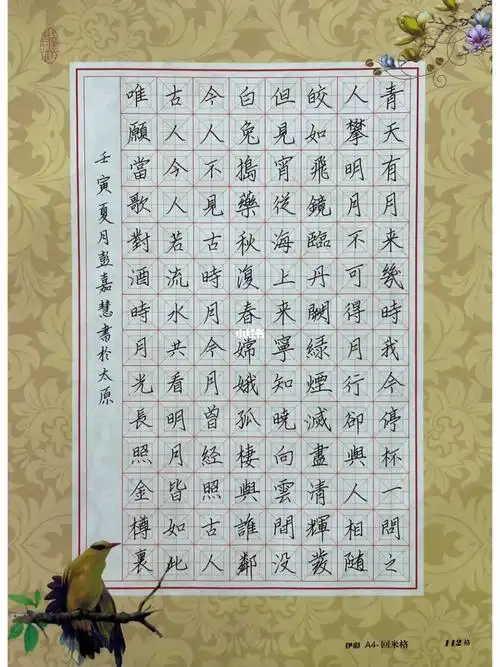 青天有月来幾時我今停杯一問之
人攀明月不可得月行卻與人相随
皎如飛鏡臨丹闕緑煙滅盡清輝發
但見宵從海上来寧知曉向雲間没
白兔搗藥秋復春嫦娥孤棲與誰鄰
今人不見古時月今月曾經照古人
古人今人若流水共看明月皆如此
唯願當歌對酒時月光長照金樽裏
壬寅夏月彭嘉慧書於太原
小红书
伊彩 A4-回米格 112格